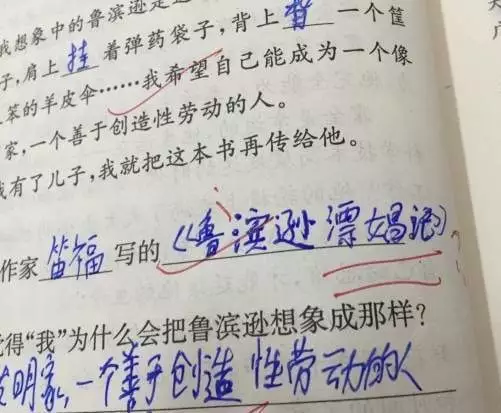 我想象中的鲁滨逊是
子,肩上挂着弹药袋子,背上背一个筐
笨的羊皮伞……我希望自己能成为一个像
家,一个善于创造性劳动的人。
我有了儿子,我就把这本书再传给他。
作家笛福写的《鲁滨逊漂娼记》
觉得“我”为什么会把鲁滨逊想象成那样?
发明家,一个善于创造性劳动的人